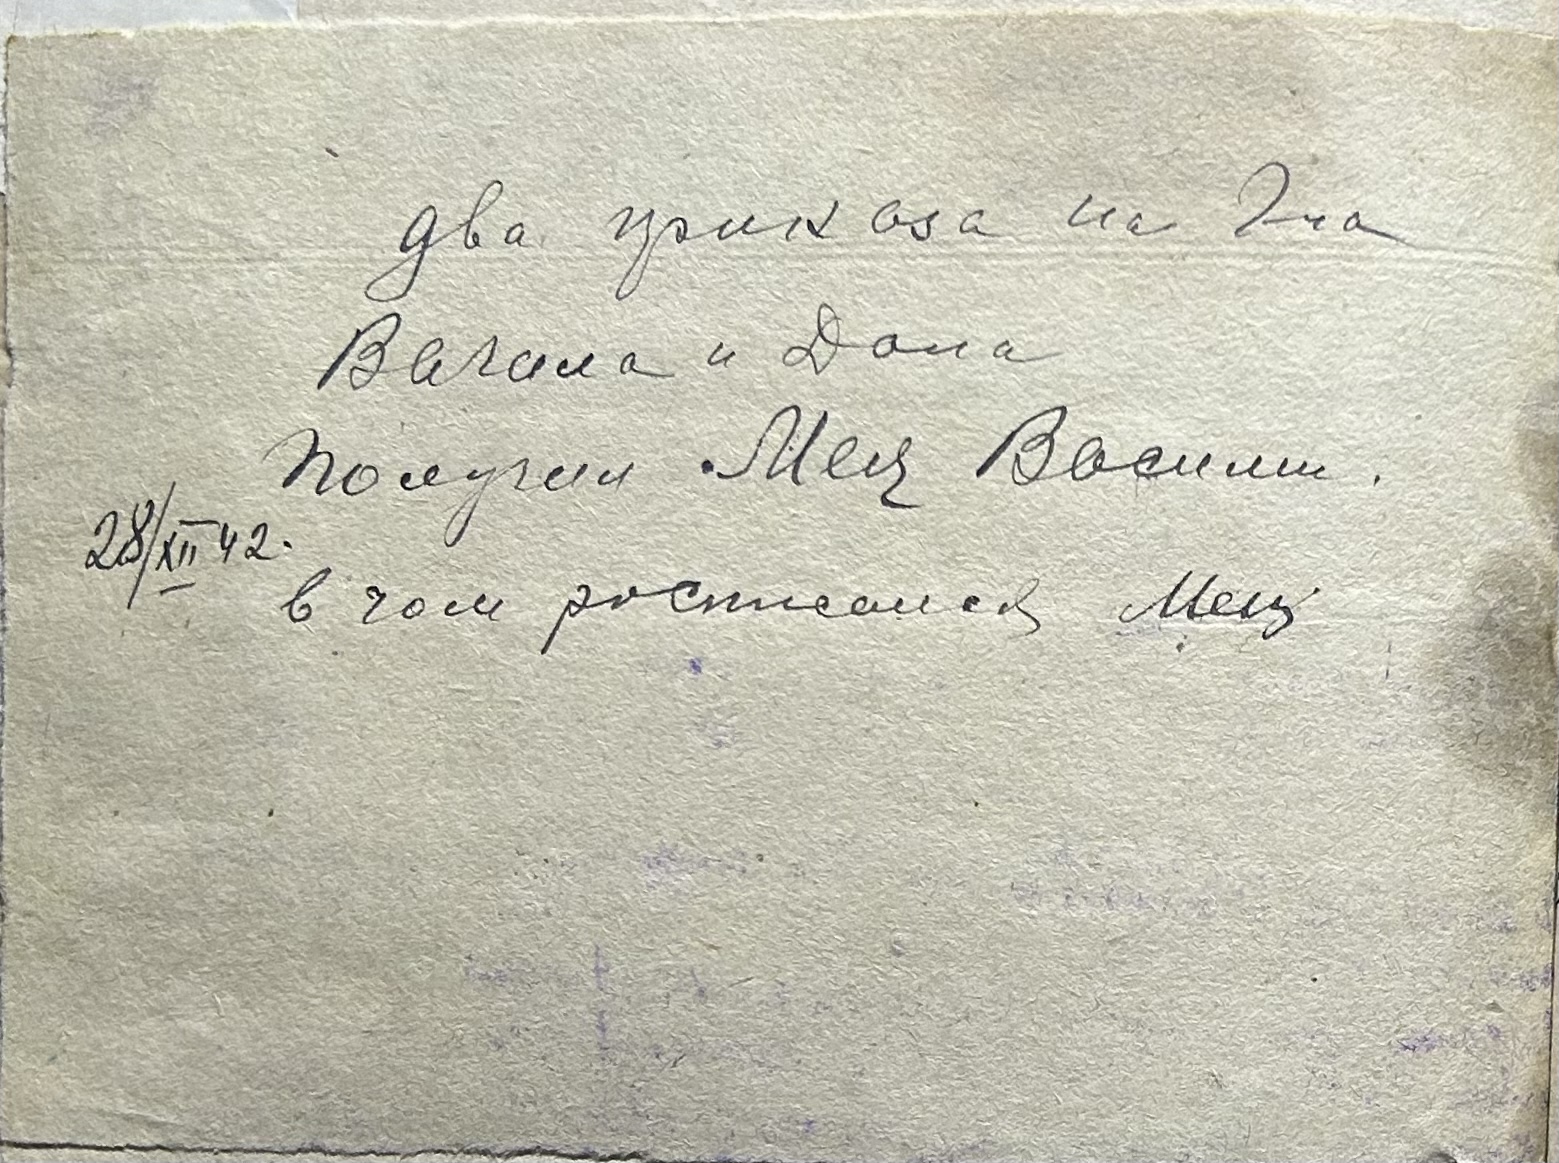 два приказа на 2на
Вагала и Дола
Получил Мец Василий.
28/XII 42.
в чом росписался Мец